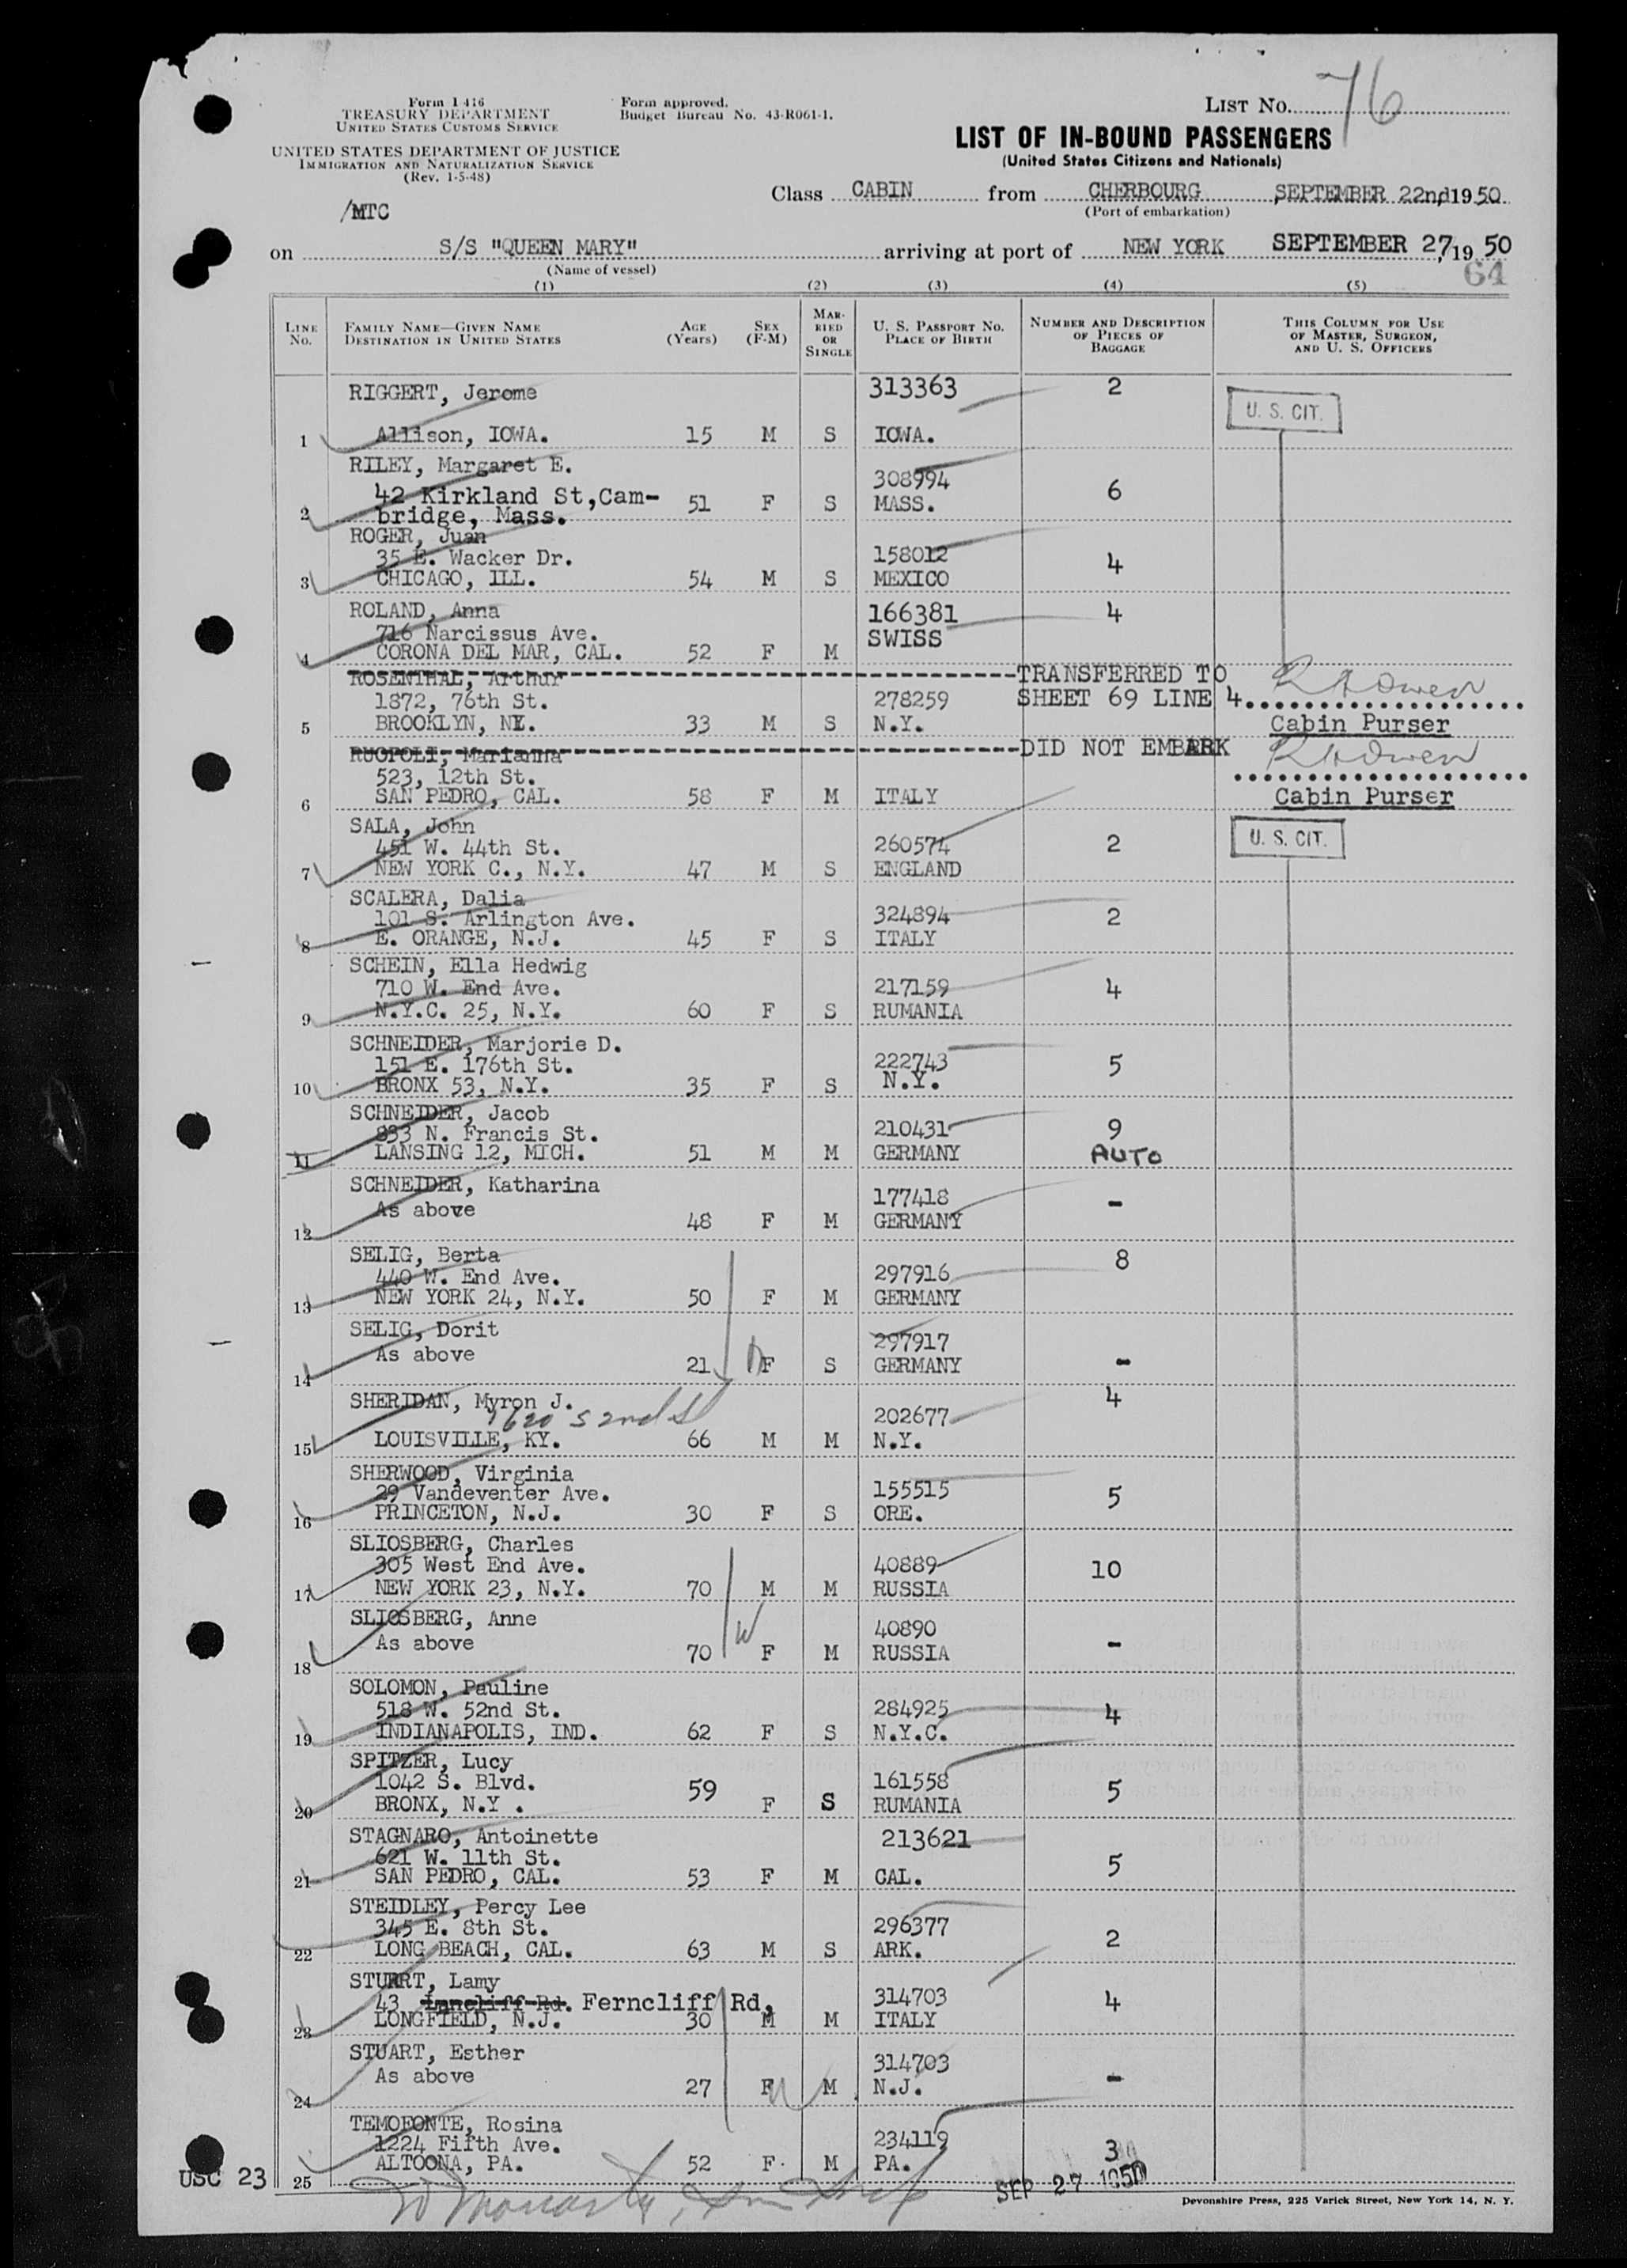 Form I 416
TREASURY DEPARTMENT
UNITED STATES CUSTOMS SERVICE
UNITED STATES DEPARTMENT OF JUSTICE
IMMIGRATION AND NATURALIZATION SERVICE
(Rev. 1-5-48)
Form approved.
Budget Bureau No. 43-R061-1.
LIST NO. 76
LIST OF IN-BOUND PASSENGERS
(United States Citizens and Nationals)
Class CABIN from CHERBOURG, SEPTEMBER 22nd, 1950.
(Port of embarkation)
/MTC
on S/S "QUEEN MARY" arriving at port of NEW YORK SEPTEMBER 27, 1950
(Name of vessel)
64
(1) (2) (3) (4) (5)
LINE NO. FAMILY NAME—GIVEN NAME DESTINATION IN UNITED STATES AGE (Years) SEX (F-M) MARRIED OR SINGLE U. S. PASSPORT NO. PLACE OF BIRTH NUMBER AND DESCRIPTION OF PIECES OF BAGGAGE THIS COLUMN FOR USE OF MASTER, SURGEON, AND U. S. OFFICERS
RIGGERT, Jerome 313363 2 U. S. CIT.
1 Allison, IOWA. 15 M S IOWA.
RILEY, Margaret E. 308994
42 Kirkland St,Cam- 6
2 bridge, Mass. 51 F S MASS.
ROGER, Juan
35 E. Wacker Dr. 158012 4
3 CHICAGO, ILL. 54 M S MEXICO
ROLAND, Anna 166381 4
716 Narcissus Ave. SWISS
4 CORONA DEL MAR, CAL. 52 F M
ROSENTHAL, Arthur TRANSFERRED TO
1872, 76th St. 278259 SHEET 69 LINE 4
5 BROOKLYN, NY. 33 M S N.Y. Cabin Purser
RUOPOLI, Marianna DID NOT EMBARK
523, 12th St.
6 SAN PEDRO, CAL. 58 F M ITALY Cabin Purser
SALA, John U. S. CIT.
451 W. 44th St. 260574 2
7 NEW YORK C., N.Y. 47 M S ENGLAND
SCALERA, Dalia
101 S. Arlington Ave. 324894 2
8 E. ORANGE, N.J. 45 F S ITALY
SCHEIN, Ella Hedwig
710 W. End Ave. 217159 4
9 N.Y.C. 25, N.Y. 60 F S RUMANIA
SCHNEIDER, Marjorie D.
151 E. 176th St. 222743 5
10 BRONX 53, N.Y. 35 F S N.Y.
SCHNEIDER, Jacob
833 N. Francis St. 210431 9
11 LANSING 12, MICH. 51 M M GERMANY AUTO
SCHNEIDER, Katharina
As above 177418 -
12 48 F M GERMANY
SELIG, Berta 8
440 W. End Ave. 297916
13 NEW YORK 24, N.Y. 50 F M GERMANY
SELIG, Dorit
As above 297917
14 21 F S GERMANY -
SHERIDAN, Myron J. 4
1620 S 2nd St 202677
15 LOUISVILLE, KY. 66 M M N.Y.
SHERWOOD, Virginia
29 Vandeventer Ave. 155515 5
16 PRINCETON, N.J. 30 F S ORE.
SLIOSBERG, Charles
305 West End Ave. 40889 10
17 NEW YORK 23, N.Y. 70 M M RUSSIA
SLIOSBERG, Anne
As above 40890 -
18 70 F M RUSSIA
SOLOMON, Pauline
518 W. 52nd St. 284925 4
19 INDIANAPOLIS, IND. 62 F S N.Y.C.
SPITZER, Lucy
1042 S. Blvd. 59 161558 5
20 BRONX, N.Y . F S RUMANIA
STAGNARO, Antoinette 213621
621 W. 11th St. 5
21 SAN PEDRO, CAL. 53 F M CAL.
STEIDLEY, Percy Lee
345 E. 8th St. 296377 2
22 LONG BEACH, CAL. 63 M S ARK.
STUART, Lamy
43 Ferncliff Rd, 314703 4
23 LONGFIELD, N.J. 30 M M ITALY
STUART, Esther
As above 314703 -
24 27 F M N.J.
TEMOFONTE, Rosina
1224 Fifth Ave. 234119 3
25 ALTOONA, PA. 52 F M PA.
USC 23
SEP 27 1950
Devonshire Press, 225 Varick Street, New York 14, N. Y.